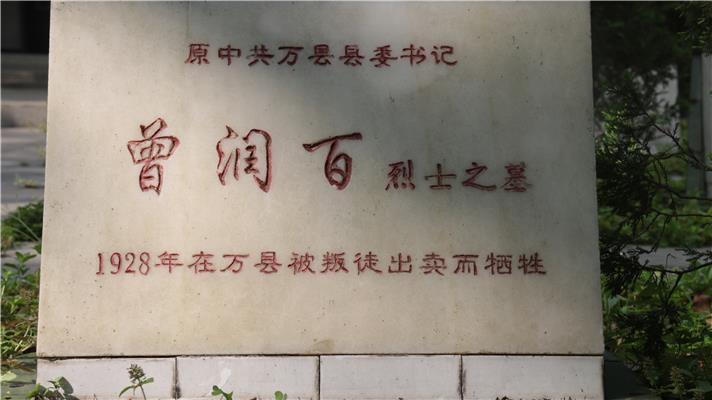 原中共万县县委书记
曾润百烈士之墓
1928年在万县被叛徒出卖而牺牲